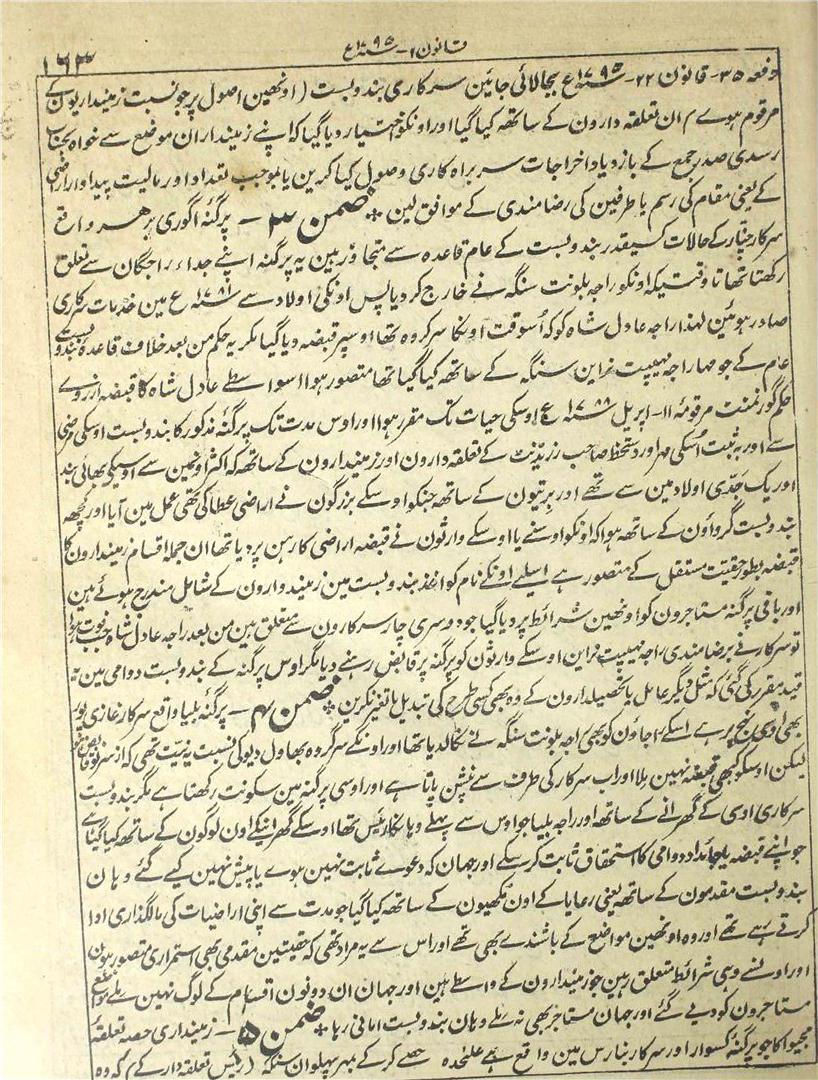 قانون ۱ - ۱۷۹۵ سنہ ع
۱۶۳
دفعہ ۳۵ - قانون ۲۲ - ۱۷۹۵ سنہ ع بجالائی جائین سرکاری بندوبست (اونھین اصول پر جو نسبت زمینداریون کے
مرقوم ہوے) ان تعلقہ دارون کے ساتھ کیا گیا اور اونکو اختیار دیا گیا کہ اپنے زمینداران موضع سے خواہ بحساب
رسدی صدر جمع کے بازدیاد اخراجات سربراہ کاری وصول کیا کرین یا بموجب تعداد اور مالیت پیداوار اراضی
کے یعنی مقام کی رسم یا طرفین کی رضامندی کے موافق لین ٭ ضمن ۳ - پرگنہ اگوری برھر واقع
سرکار چنار کے حالات کسیقدر بندوبست کے عام قاعدہ سے متجاوز ہین یہ پرگنہ اپنے جداء راجگان سے تعلق
رکھتا تھا تا وقتیکہ اونکو راجہ بلونت سنگہ نے خارج کر دیا پس اونکی اولاد سے ۱۷۸۱ سنہ ع مین خدمات سرکاری
صادر ہوئین لہذا راجہ عادل شاہ کو کہ اسوقت اونکا سرکروہ تھا اوسپر قبضہ دیا گیا مگر یہ حکم من بعد خلاف قاعدہ بندوبست
عام کے جو مہاراجہ مہیپت نراین سنگہ کے ساتھ کیا گیا تھا متصور ہوا اسواسطے عادل شاہ کا قبضہ ازروے
حکم گورنمنٹ مرقومہ ۱۱ - اپریل ۱۷۸۸ سنہ ع اوسکی حیات تک مقرر ہوا اور اوس مدت تک پرگنہ مذکور کا بندوبست اوسکی مرضی
سے اور بہ ثبت اسکی مہر اور دستخط صاحب رزیڈنٹ کے تعلقہ دارون اور زمیندارون کے ساتھ کہ اکثر اونمین سے اوسکی بھائی بند
اور یک جدی اولاد مین سے تھے اور برتیون کے ساتھ جنکو اوسکے بزرگون نے اراضی عطا کی تھی عمل مین آیا اور کچھہ
بندوبست گروائون کے ساتھ ہوا کہ اونکو اوسنے یا اوسکے وارثون نے قبضہ اراضی کا رہن پر دیا تھا ان جملہ اقسام زمیندارون کا
قبضہ بطور حقیت مستقل کے متصور ہے اسلیے اونکے نام کواغذ بندوبست مین زمیندارون کے شامل مندرج ہوئے ہین
اور باقی پرگنہ مستاجرون کو اونھین شرائط پر دیا گیا جو دوسری چار سرکارون سے متعلق ہین من بعد راجہ عادل شاہ جب فوت ہوا
تو سرکار نے برضامندی راجہ مہیپت نراین اوسکے وارثون کو پرگنہ پر قابض رہنے دیا مگر اوس پرگنہ کے بندوبست دوامی مین یہ
قید مقرر کی گئی کہ مثل دیگر عامل یا تحصیلدارون کے وہ بھی کسی طرح کی تبدیل یا تغیر نکرین ٭ ضمن ۴ - پرگنہ بلیا واقع سرکار غازی پور
بھی اوسی نہج پر ہے اسکے راجاؤن کو بھی راجہ بلونت سنگہ نے نکالدیا تھا اور اونکے سرگروہ بھاول دیو کی نسبت یہ نیت تھی کہ از سر نو قابض ہو
لیکن اوسکو کبھی قبضہ نہین ملا اور اب سرکار کی طرف سے پنشن پاتا ہے اور اوسی پرگنہ مین سکونت رکھتا ہے مگر بندوبست
سرکاری اوسی کے گھرانے کے ساتھ اور راجہ بلیا جو اوس سے پہلے وہانکا رئیس تھا اوسکے گھرانیکے اون لوگون کے ساتھ کیا گیا ہے
جو اپنے قبضہ یا جائداد دوامی کا استحقاق ثابت کر سکے اور جہان کہ دعوے ثابت نہین ہوے یا پیش نہین کیے گئے وہان
بندوبست مقدمون کے ساتھ یعنی رعایا کے اون مکھیون کے ساتھ کیا گیا جو مدت سے اپنی اراضیات کی مالگذاری ادا
کرتے رہے تھے اور وہ اونھین مواضع کے باشندے بھی تھے اور اس سے یہ مراد تھی کہ حقیتین مقدمی بھی استمراری متصور ہون
اور اونسے وہی شرائط متعلق رہین جو زمیندارون کے واسطے ہین اور جہان ان دونون اقسام کے لوگ نہین ملے مواضع
مستاجرون کو دیے گئے اور جہان مستاجر بھی نہ ملے وہان بندوبست امانی رہا ٭ ضمن ۵ - زمینداری حصہ تعلقہ
مجہوا کا جو پرگنہ کسوار اور سرکار بنارس مین واقع ہے علٰحدہ حصے کر کے مہر پہلوان سنگہ (رئیس تعلقہ دار کے) کہ وہ